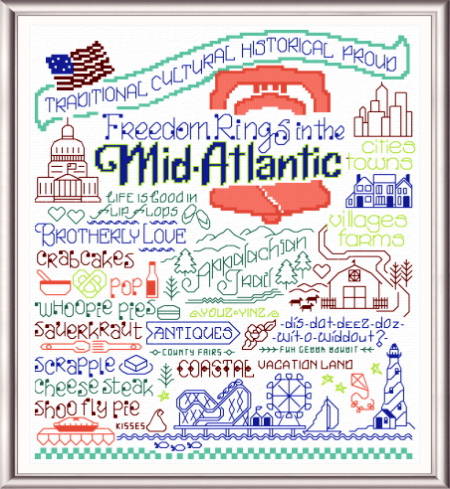 TRADITIONAL CULTURAL HISTORICAL PROUD
Freedom Rings in the
Mid-Atlantic
cities
towns
villages
farms
LIFE IS GOOD IN
FLIP FLOPS
BROTHERLY LOVE
CRABCAKES
POP
Appalachian
Trail
whoopie pies
YOUZ YINZ
sauerkraut
ANTIQUES
-dis-dat-deez-doz-
-wit-o-widdout?-
COUNTY FAIRS
FUH GEDDA BOUDIT
scrapple
COASTAL
VACATION LAND
cheese steak
shoo fly pie
KISSES